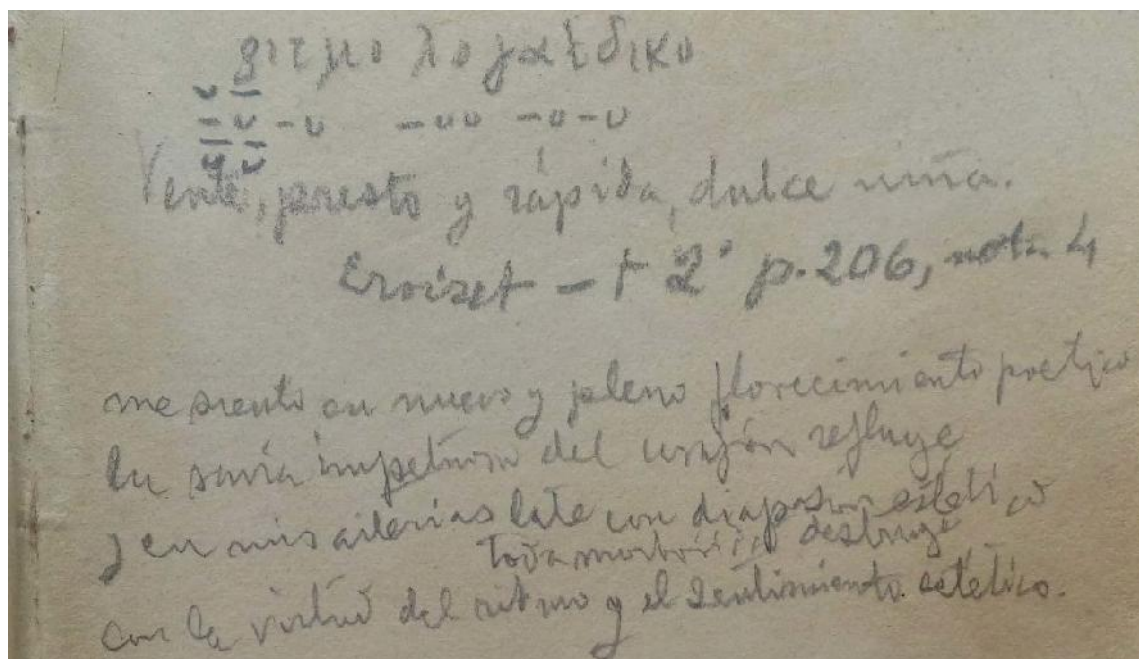 ριτμο λογαέδικο
∪ –
– ∪ – ∪ – ∪ ∪ – ∪ – ∪
∪ ∪
Vente, presto y rápida, dulce niña.
Croiset – t 2º p. 206, nota 4
me siento en nuevo y pleno florecimiento poetico
la savia impetuosa del corazón refluye
y en mis arterias late con diapasón estético
toda destruye
con la virtud del ritmo y el sentimiento estético.